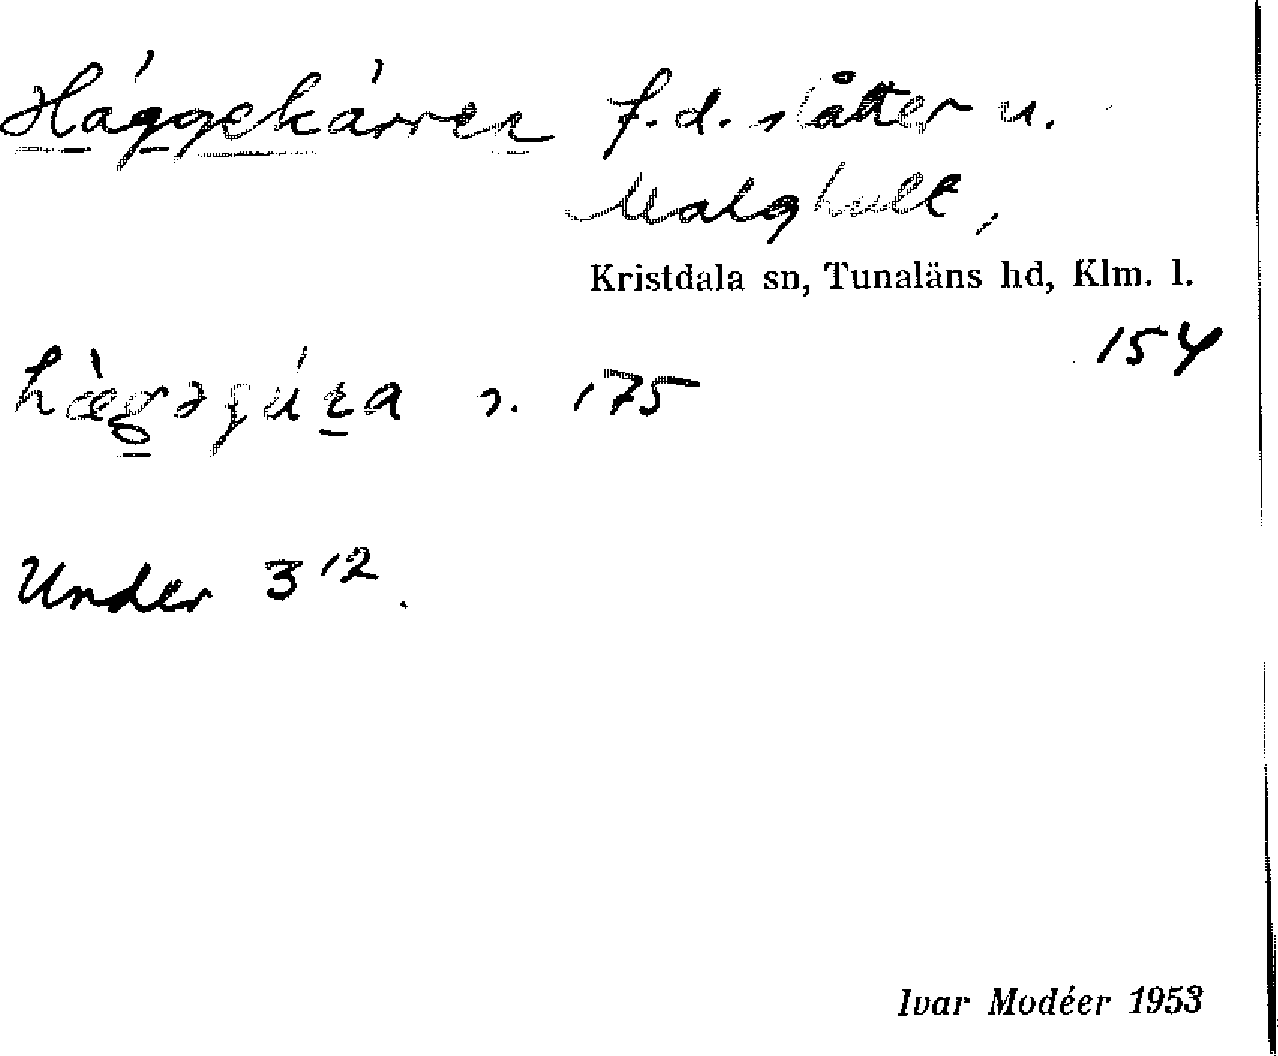 Häggekärren f.d. slåtter u.
Malghult,
Kristdala sn, Tunaläns hd, Klm. l.
154
s. 175
Under 3¹².
Ivar Modéer 1953